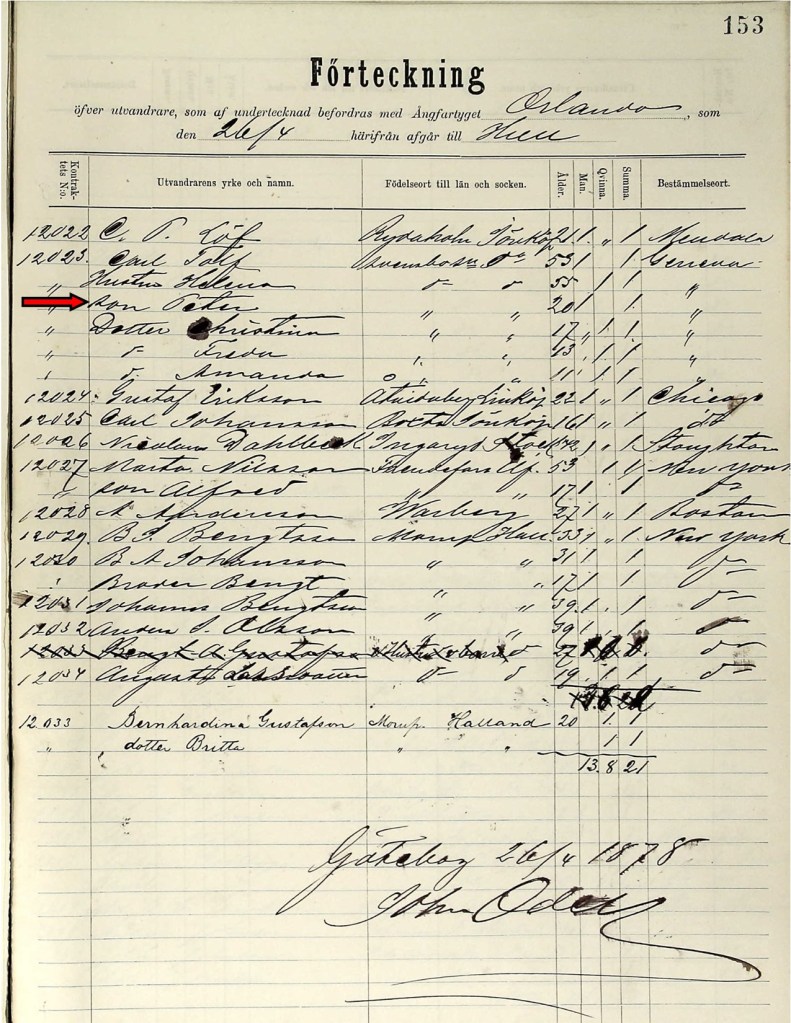 153
Förteckning
öfver utvandrare, som af undertecknad befordras med Ångfartyget Orlando, som
den 26/4 härifrån afgår till Hull
Kontraktets N:o. Utvandrarens yrke och namn. Födelseort till län och socken. Ålder. Man. Qvinna. Summa. Bestämmelseort.
12022 C. P. Löf Rydaholm Jönköp 21 1. " 1
12023. Carl 53 1 1 Geneva
" Hustru Helena d- d 55 1 1 "
" son Peter " " 20 1 1 "
" Dotter Christina " " 17 " 1 1 "
" d- Freda " " 13 1 1 "
" d. Amanda 11 1 1
12024 Gustaf Eriksson Linköp 22 1 " 1 Chicago
12025 Carl Johansson Jönköp 16 1 " 1 do
12026 Nicolaus Dahlbeck Ingaryd 42 1 Stoughton
12027 Marta Nilsson 53 1 1 New York
" son Alfred " " 17 1 1
12028 A Anderson Warberg 27 1 " 1 Boston
12029. B. Bengtsson Morup Hall. 33 1 " 1 New York
12030 B A Johansson " " 31 1 1 d-
Broder Bengt " 17 1 1
12031 Johannes Bengtsson " " 39. 1. 1 d-
12032 Anders J. Olsson " " 39 1 1 d-
12033 Bengt A Gustafson 27 d-
12034 Augusta d- d 19. 1 1 d-
12.033 Bernhardina Gustafson Morup. Halland 20 1. 1
" dotter Britta " " 1 1
13. 8 21
Göteborg 26/4 1878
John Odell